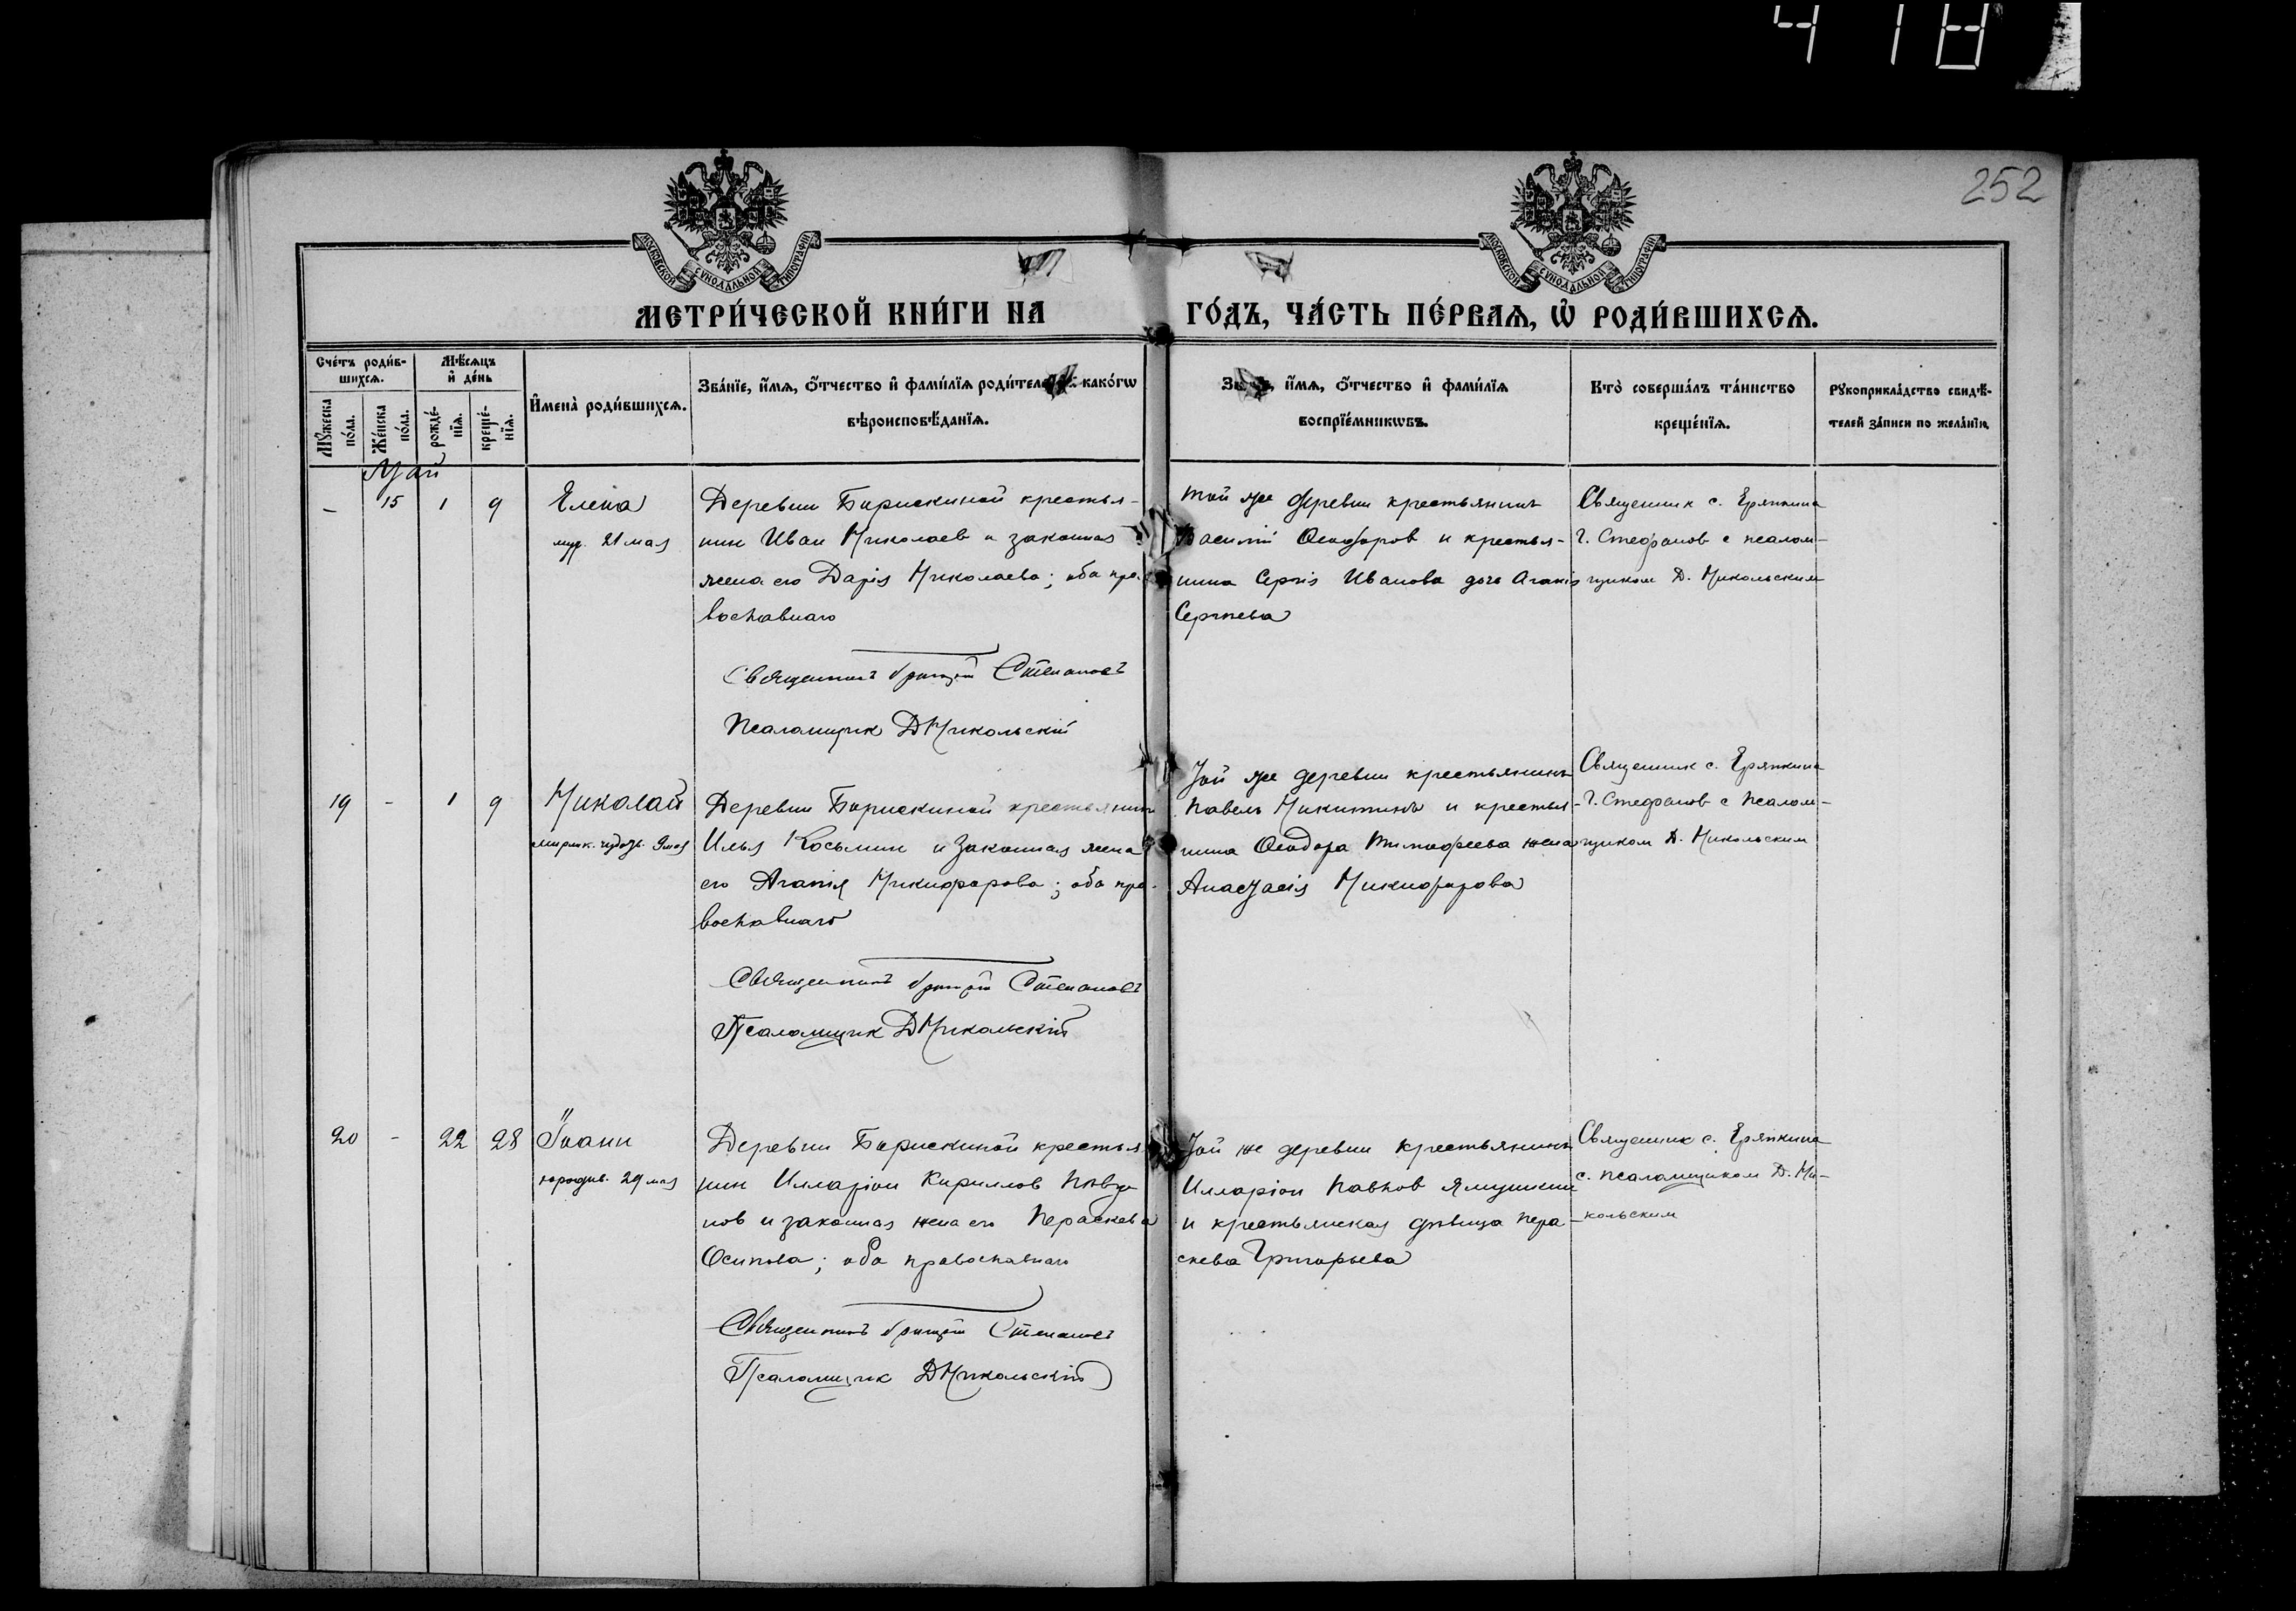 418
252
МОСКОВСКОЙ СѴНОДАЛЬНОЙ ТИПОГРАФІИ
МОСКОВСКОЙ СѴНОДАЛЬНОЙ ТИПОГРАФІИ
МЕТРИ́ЧЕСКОЙ КНИ́ГИ НА
ГО́ДЪ, ЧА́СТЬ ПЕ́РВАѦ, Ѡ҆ РОДИ́ВШИХСѦ.
Сче́тъ роди́в-
шихсѧ.
Мѣ́сѧцъ
и҆ де́нь
Мꙋ́жеска
по́ла.
Же́нска
по́ла.
рожде́-
нїѧ.
креще́-
нїѧ.
И҆мена̀ роди́вшихсѧ.
Зва́нїе, и҆́мѧ, ѻ҆́тчество и҆ фами́лїѧ роди́тел како́гѡ
вѣроисповѣ́данїѧ.
и҆́мѧ, ѻ҆́тчество и҆ фами́лїѧ
воспрїе́мникѡвъ.
Кто̀ соверша́лъ та́инство
креще́нїѧ.
Рꙋкоприкла́дство свидѣ́-
телей за́писи по жела́нїю.
Май
– 15 1 9
Елена
муч. 21 мая
Деревни Борискиной крестья-
нин Иван Николаев и законная
жена его Дарія Николаева; оба пра-
вославнаго
Священникъ Григорій Стефановъ
Псаломщик Д Никольскій
Той же деревни крестьянинъ
Василій Ѳеодоров и крестья-
нина Сергія Иванова дочь Агапія
Сергѣева
Священник с. Еряпкина
Г. Стефанов с псалом-
щиком Д. Никольским
19 – 1 9
Николай
мирлик. чудотв. 9 мая
Деревни Борискиной крестьянин
Илья Косьмин и законная жена
его Агапія Никифорова; оба пра-
вославнаго
Священникъ Григорій Стефановъ
Псаломщик Д Никольскій
Той же деревни крестьянинъ
Павелъ Никитинъ и крестья-
нина Ѳеодора Тимофеева жена
Анастасія Никифорова
Священник с. Еряпкина
Г. Стефанов с псалом-
щиком Д. Никольским
20 – 22 28
Іоанн
юродив. 29 мая
Деревни Борискиной крестья
нин Илларіон Кириллов
нов и законная жена его Параскева
Осипова; оба православнаго
Священникъ Григорій Стефановъ
Псаломщик Д Никольскій
Той же деревни крестьянинъ
Илларіон Павлов Ямушкин
и крестьянская дѣвица Пара-
скева Григорьева
Священник с. Еряпкина
с псаломщиком Д. Ни-
кольским